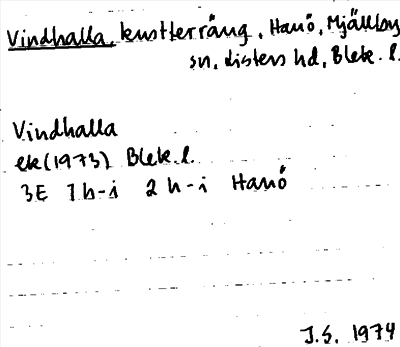 Vindhalla, kustterräng, Hanö, Mjällby
sn, Listers hd, Blek. l.
Vindhalla
ek (1973) Blek. l.
3E 1h-i 2h-i Hanö
J.S. 1974